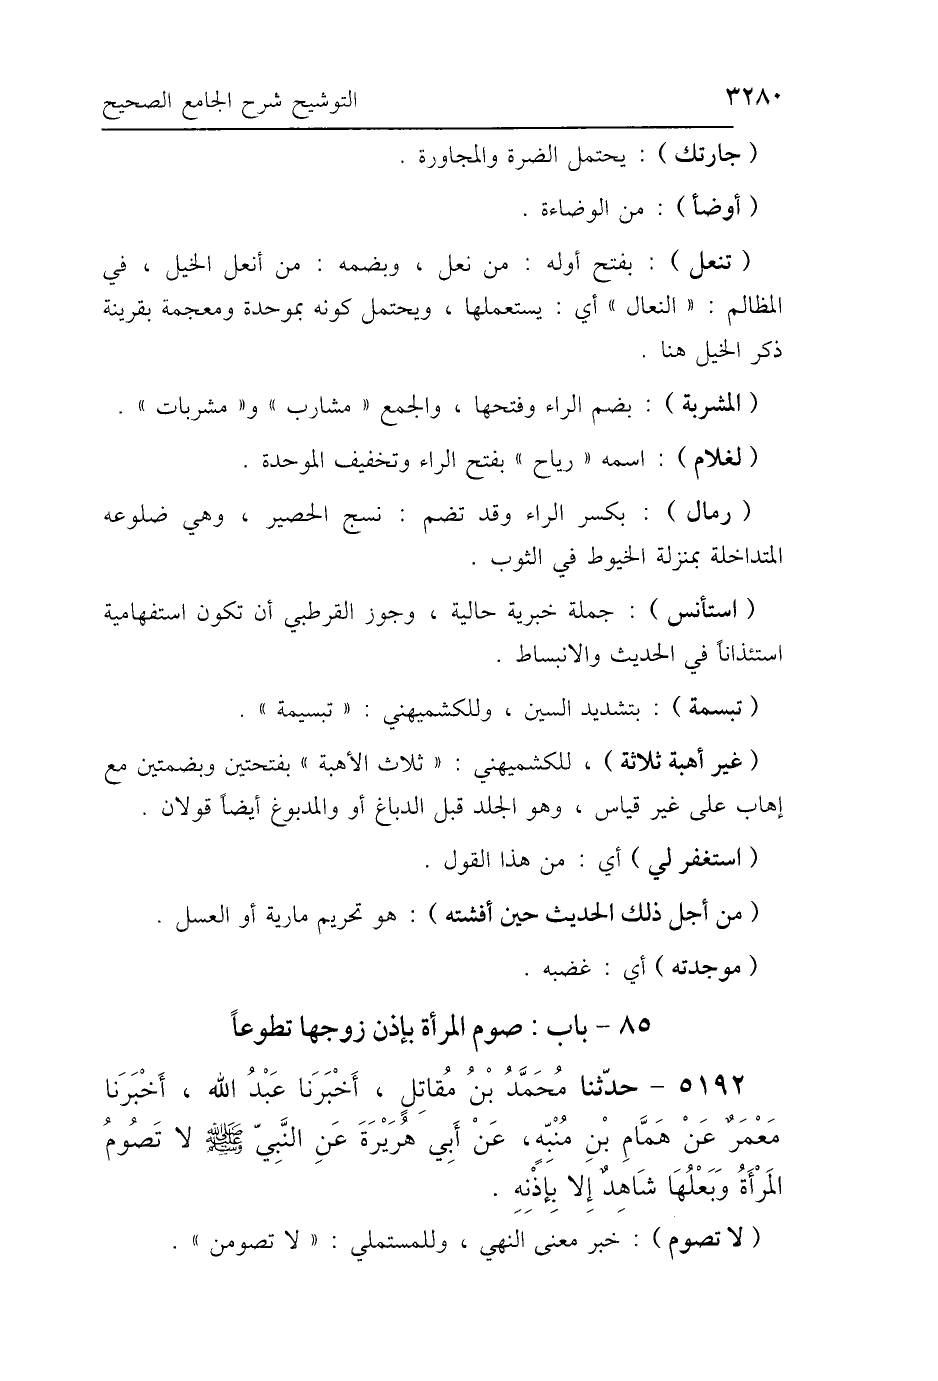 ٣٢٨٠ التوشيح شرح الجامع الصحيح
( جارتك ) : يحتمل الضرة والمجاورة .
( أوضأ ) : من الوضاءة .
( تنعل ) : بفتح أوله : من نعل ، وبضمه : من أنعل الخيل ، في
المظالم : « النعال » أي : يستعملها ، ويحتمل كونه بموحدة ومعجمة بقرينة
ذكر الخيل هنا .
( المشربة ) : بضم الراء وفتحها ، والجمع « مشارب » و« مشربات » .
( لغلام ) : اسمه « رياح » بفتح الراء وتخفيف الموحدة .
( رمال ) : بكسر الراء وقد تضم : نسج الحصير ، وهي ضلوعه
المتداخلة بمنزلة الخيوط في الثوب .
( استأنس ) : جملة خبرية حالية ، وجوز القرطبي أن تكون استفهامية
استئذاناً في الحديث والانبساط .
( تبسمة ) : بتشديد السين ، وللكشميهني : « تبسيمة » .
( غير أهبة ثلاثة ) ، للكشميهني : « ثلاث الأهبة » بفتحتين وبضمتين مع
إهاب على غير قياس ، وهو الجلد قبل الدباغ أو والمدبوغ أيضاً قولان .
( استغفر لي ) أي : من هذا القول .
( من أجل ذلك الحديث حين أفشته ) : هو تحريم مارية أو العسل .
( موجدته ) أي : غضبه .
٨٥ - باب : صوم المرأة بإذن زوجها تطوعاً
٥١٩٢ - حدّثنا مُحَمَّدُ بْنُ مُقاتِلٍ ، أَخْبَرَنا عَبْدُ الله ، أَخْبَرَنا
مَعْمَرٌ عَنْ هَمَّامِ بْنِ مُنْبِّهٍ، عَنْ أَبِي هُرَيْرَةَ عَنِ النَّبِيّ ﷺ لا تَصُومُ
المَرْأَةُ وَبَعْلُهَا شَاهِدٌ إلا بِإِذْنِهِ .
( لا تصوم ) : خبر معنى النهي ، وللمستملي : « لا تصومن » .